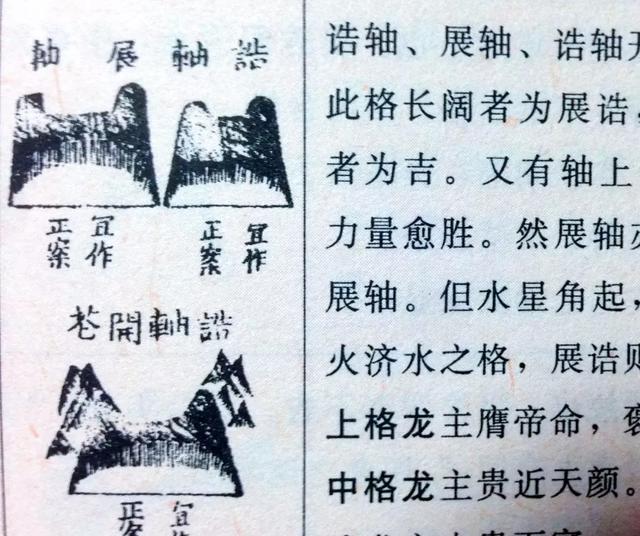 誥軸
展軸
宜作
正案
宜作
正案
誥軸開花
宜作
正案
诰轴、展轴、诰轴开
此格长阔者为展诰，
者为吉。又有轴上
力量愈胜。然展轴
展轴。但水星角起，
火济水之格，展诰则
上格龙主膺帝命，褒
中格龙主贵近天颜。